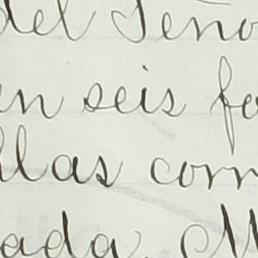 del Seno
un seis fo
llas com
ada. M